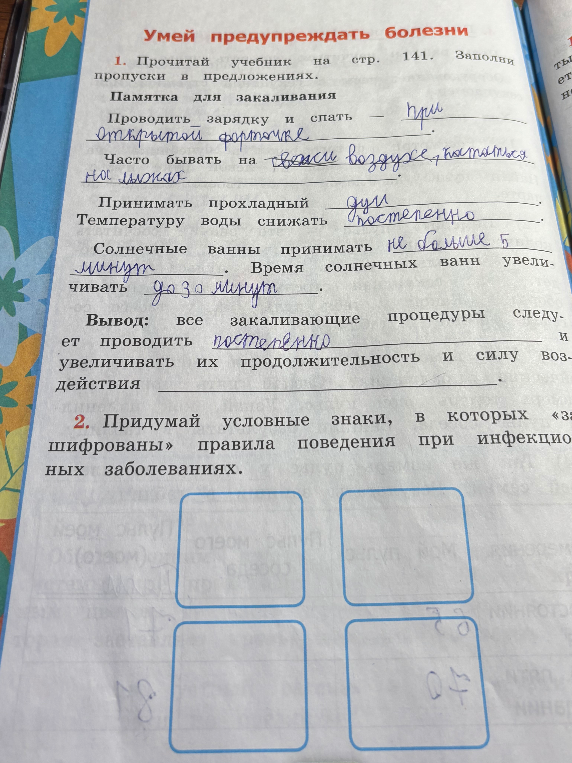 Умей предупреждать болезни
1. Прочитай учебник на стр. 141. Заполни
пропуски в предложениях.
Памятка для закаливания
Проводить зарядку и спать — при
открытой форточке.
Часто бывать на воздухе, кататься
на лыжах.
Принимать прохладный душ.
Температуру воды снижать постепенно.
Солнечные ванны принимать не больше 5
минут. Время солнечных ванн увели-
чивать до 30 минут.
Вывод: все закаливающие процедуры следу-
ет проводить постепенно и
увеличивать их продолжительность и силу воз-
действия.
2. Придумай условные знаки, в которых «за
шифрованы» правила поведения при инфекцио
ных заболеваниях.